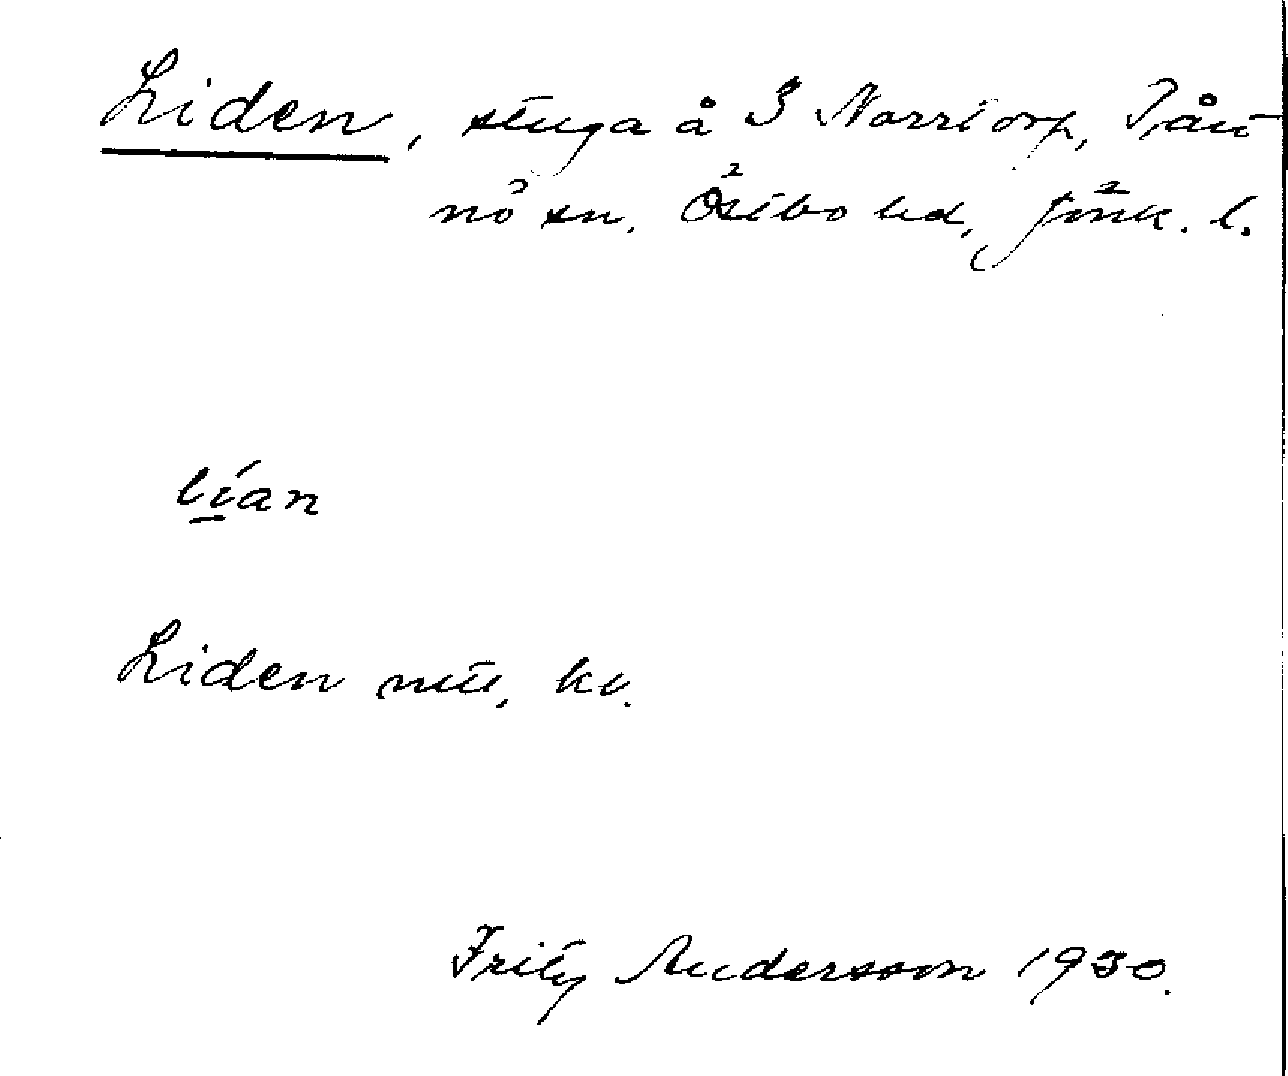 Liden, stuga å Norrtorp, Tån-
nö sn. Östbo hd, Jönk. l.
lían
Liden
Fritz Andersson 1930.